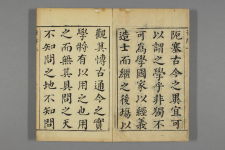 阨塞古今之異宜可
以謂之學乎非獨不
可為學國家以經義
造士而繼之後場以
觀其博古通今之實
學特有以用之也用
之而無其具問之天
不知問之地不知問